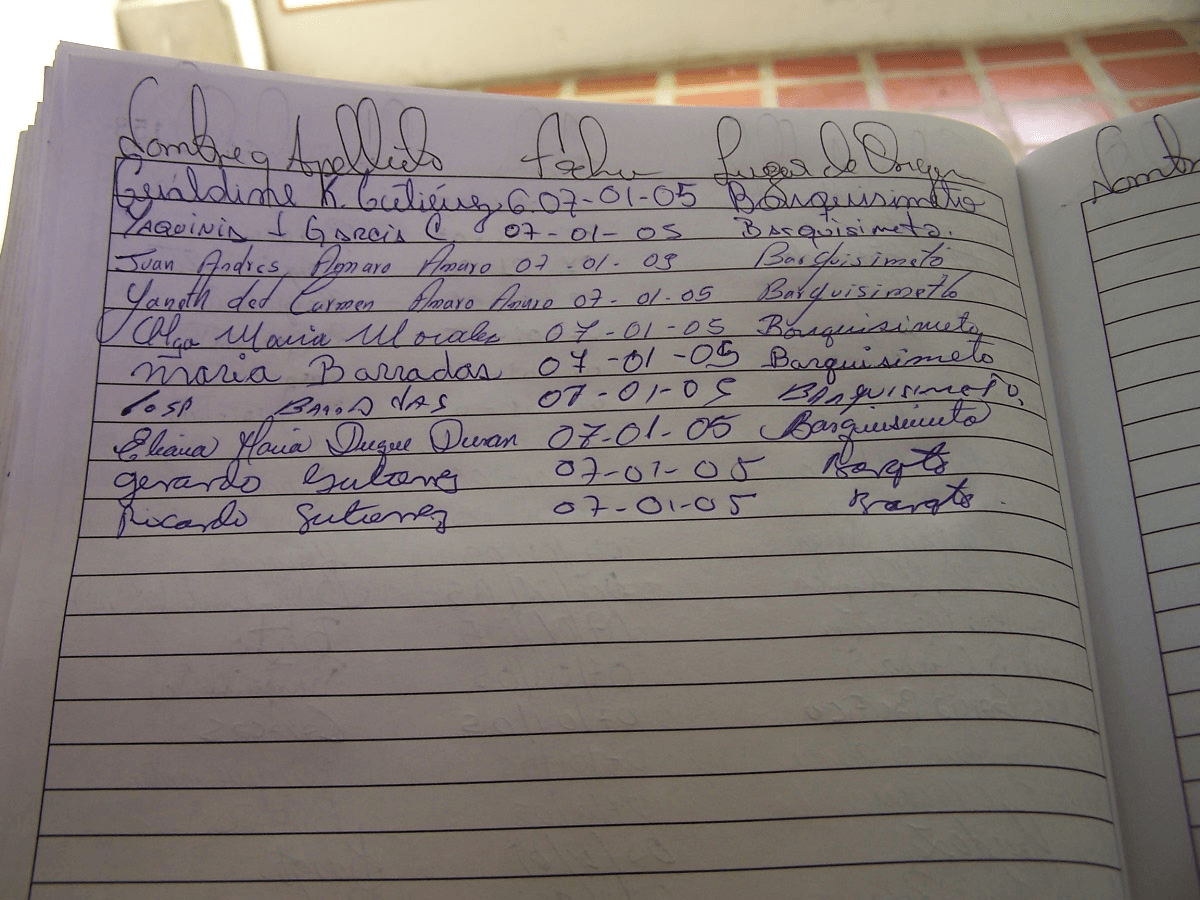 Nombre y Apellido Fecha Lugar de Origen Nombr
Geraldine K. Gutiérrez G. 07-01-05 Barquisimeto
YAQUINIA J GARCIA C 07-01-05 Barquisimeto.
Juan Andres Amaro Amaro 07-01-05 Barquisimeto
Yaneth del Carmen Amaro Amaro 07-01-05 Barquisimeto
Olga Maria Morales 07-01-05 Barquisimeto
Maria Barradas 07-01-05 Barquisimeto
Jose BARRADAS 07-01-05 BARQUISIMETO.
Eliana Maria Duque Duran 07-01-05 Barquisimeto
Gerardo Gutierrez 07-01-05 Barqto
Ricardo Gutierrez 07-01-05 Barqto.